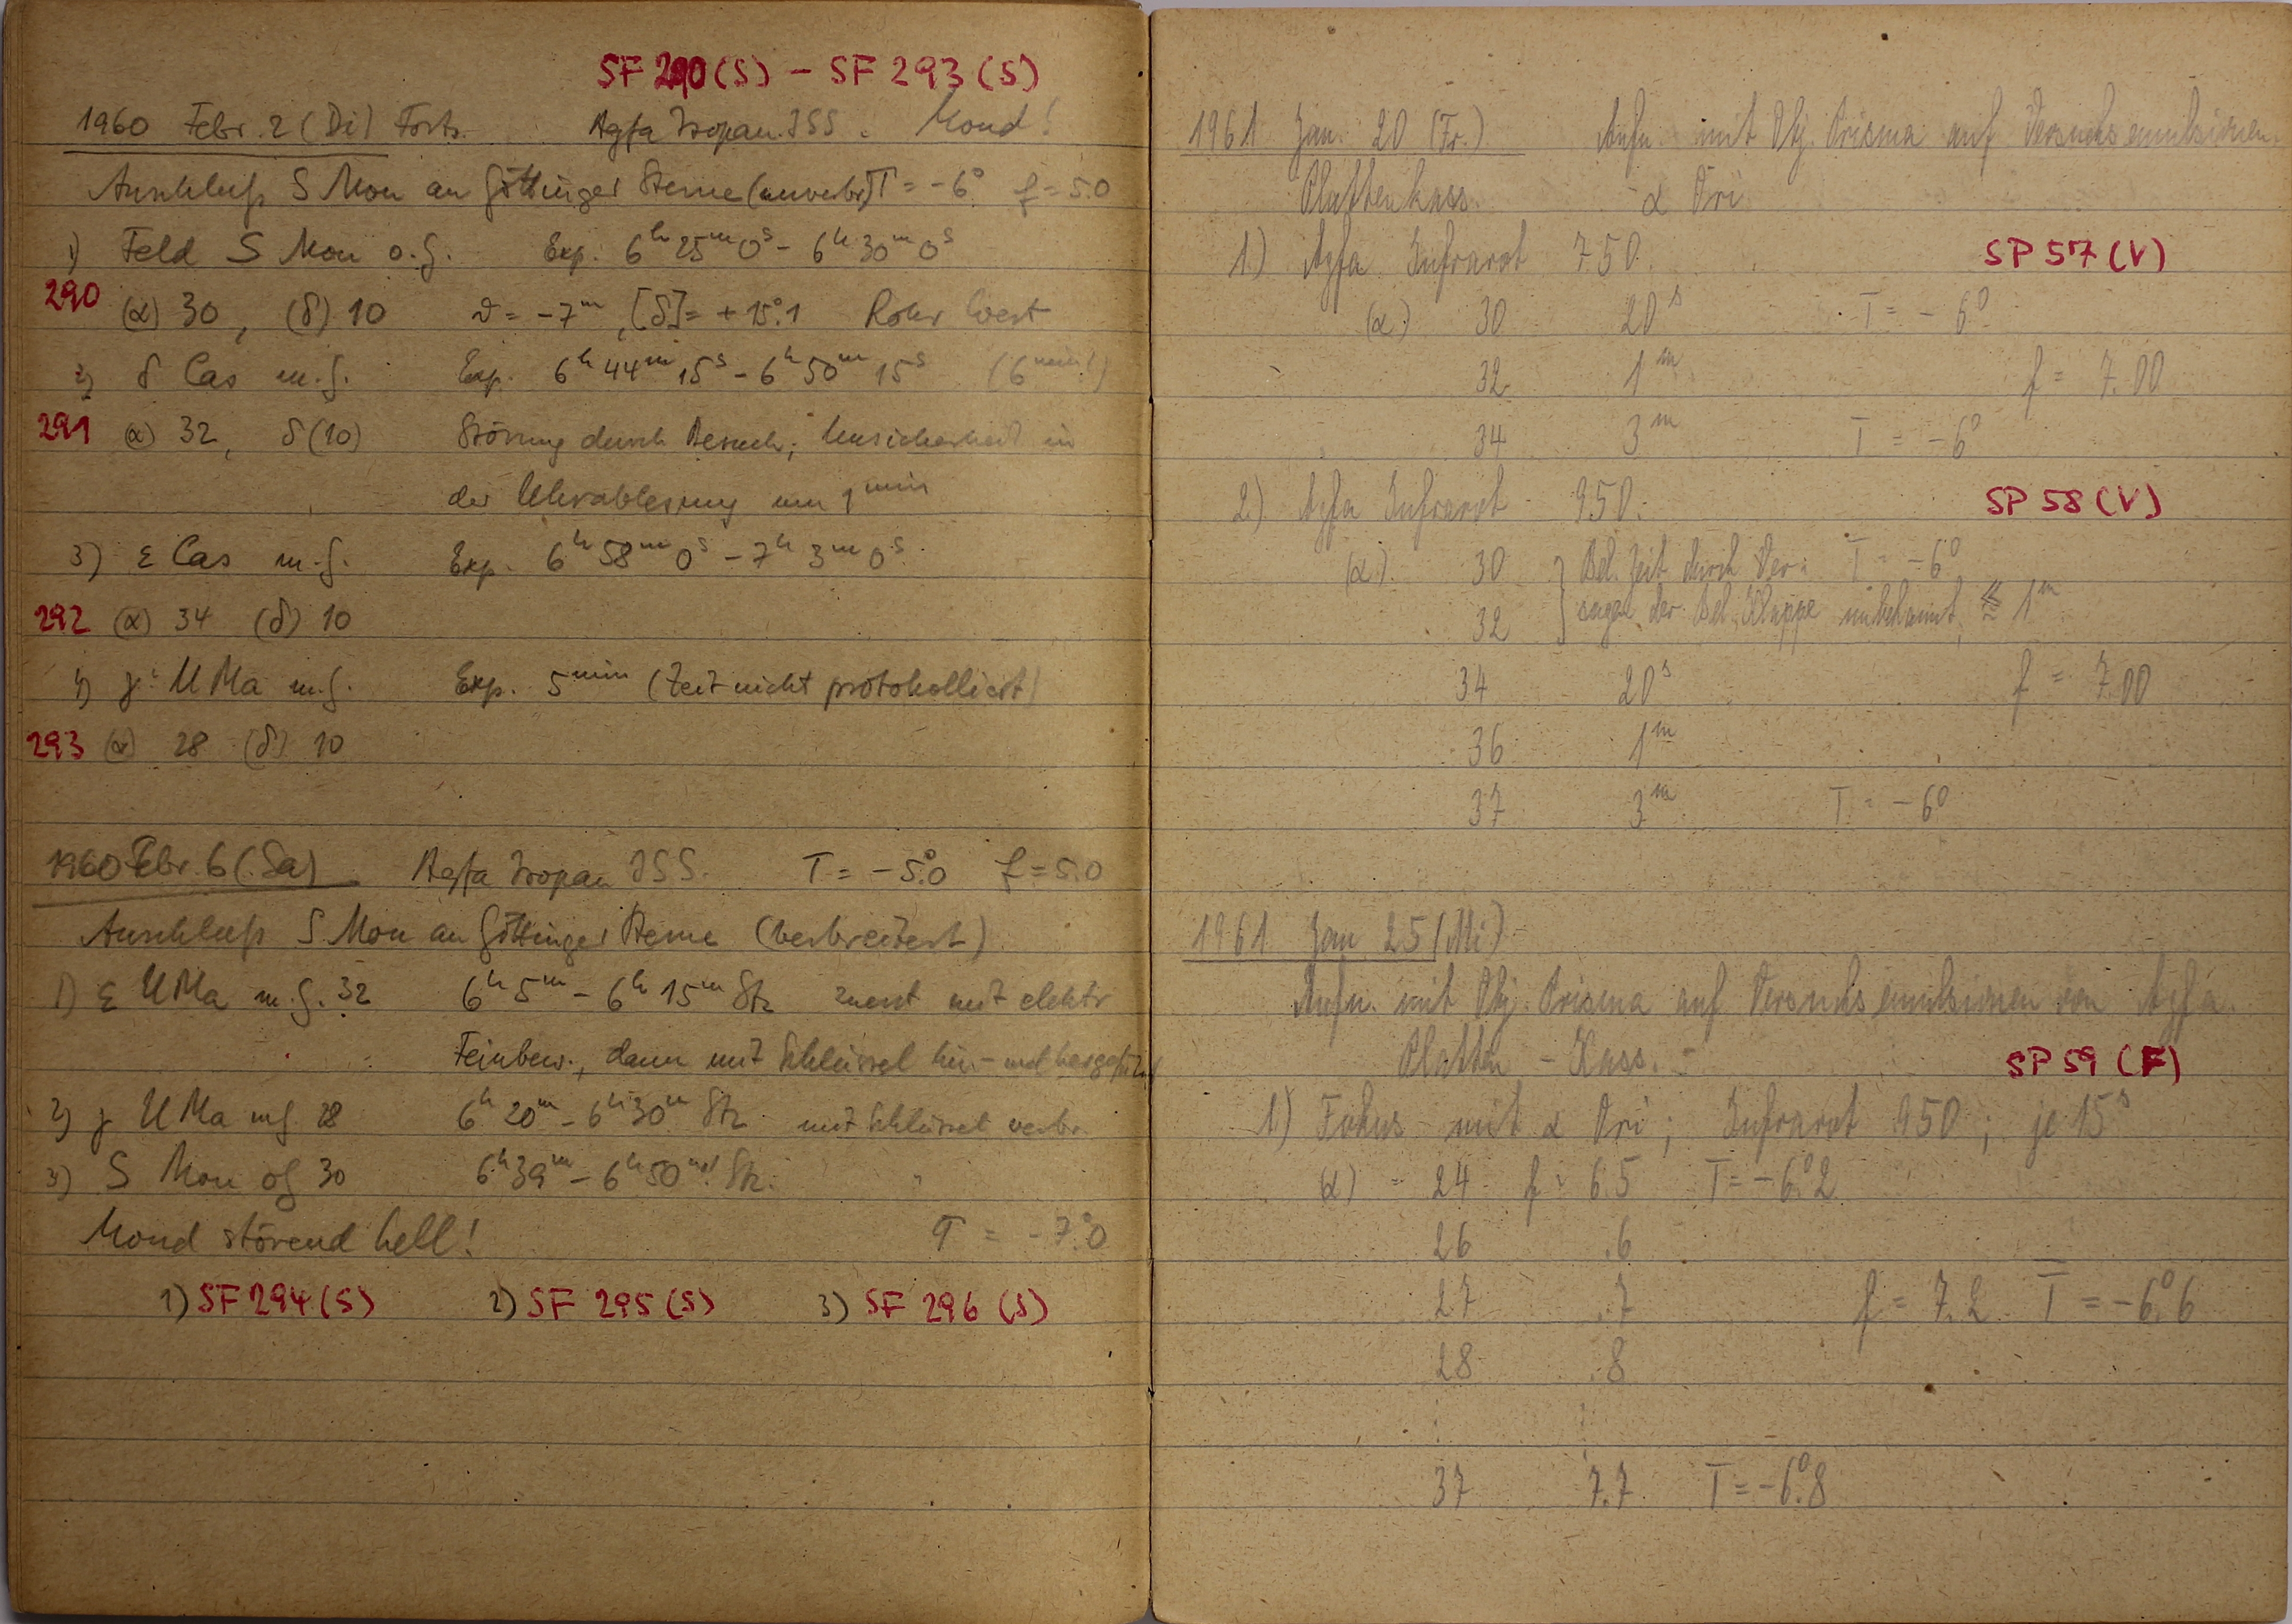 SF 290 (S) – SF 293 (S)
1960 Febr. 2 (Di) Forts. Agfa Isopan ISS. Mond!
Anschluß S Mon an Göttinger Sterne (unverbr.) T = -6° f = 5.0
1) Feld S Mon o.G. Exp. 6h 25m 0s – 6h 30m 0s
290 (α) 30, (δ) 10 ϑ = -7m, [δ] = +15°.1 Rohr West
2) δ Cas m.G. Exp. 6h 44m 15s – 6h 50m 15s (6min!)
291 (α) 32, δ (10) Störung durch Besuch; Unsicherheit in
der Uhrablesung um 1min
3) ε Cas m.G. Exp. 6h 58m 0s – 7h 3m 0s
292 (α) 34 (δ) 10
4) γ UMa m.G. Exp. 5min (Zeit nicht protokolliert)
293 (α) 28 (δ) 10
1960 Febr. 6 (Sa) Agfa Isopan ISS. T = -5°.0 f = 5.0
Anschluß S Mon an Göttinger Sterne (verbreitert)
1) ε UMa m.G. 32 6h 5m – 6h 15m Stz zuerst mit elektr
Feinbew., dann mit Schlüssel hin- und
2) γ UMa mG 28 6h 20m – 6h 30m Stz mit Schlüssel verbr.
3) S Mon oG 30 6h 39m – 6h 50m Stz. "
Mond störend hell! T = -7°.0
1) SF 294 (S) 2) SF 295 (S) 3) SF 296 (S)
1961 Jan. 20 (Fr.) Aufn. mit Obj. Prisma auf Versuchsemulsionen.
Plattenkass. α Ori
1.) Agfa Infrarot 750. SP 57 (V)
(α) 30 20s T = -6°
32 1m f = 7.00
34 3m T = -6°
2.) Agfa Infrarot 950. SP 58 (V)
(α) 30 } Bel. Zeit durch Ver- T = -6°
32 sagen der Bel. Klappe unbekannt, ≲ 1m
34 20s f = 7.00
36 1m
37 3m T = -6°
1961 Jan 25 (Mi)
Aufn. mit Obj. Prisma auf Versuchsemulsionen von Agfa.
Platten-Kass. SP 59 (F)
1) Fokus mit α Ori; Infrarot 950; je 15s
(α) = 24 f = 6.5 T = -6°.2
26 .6
27 .7 f = 7.2 T = -6°.6
28 .8
37 7.7 T = -6°.8